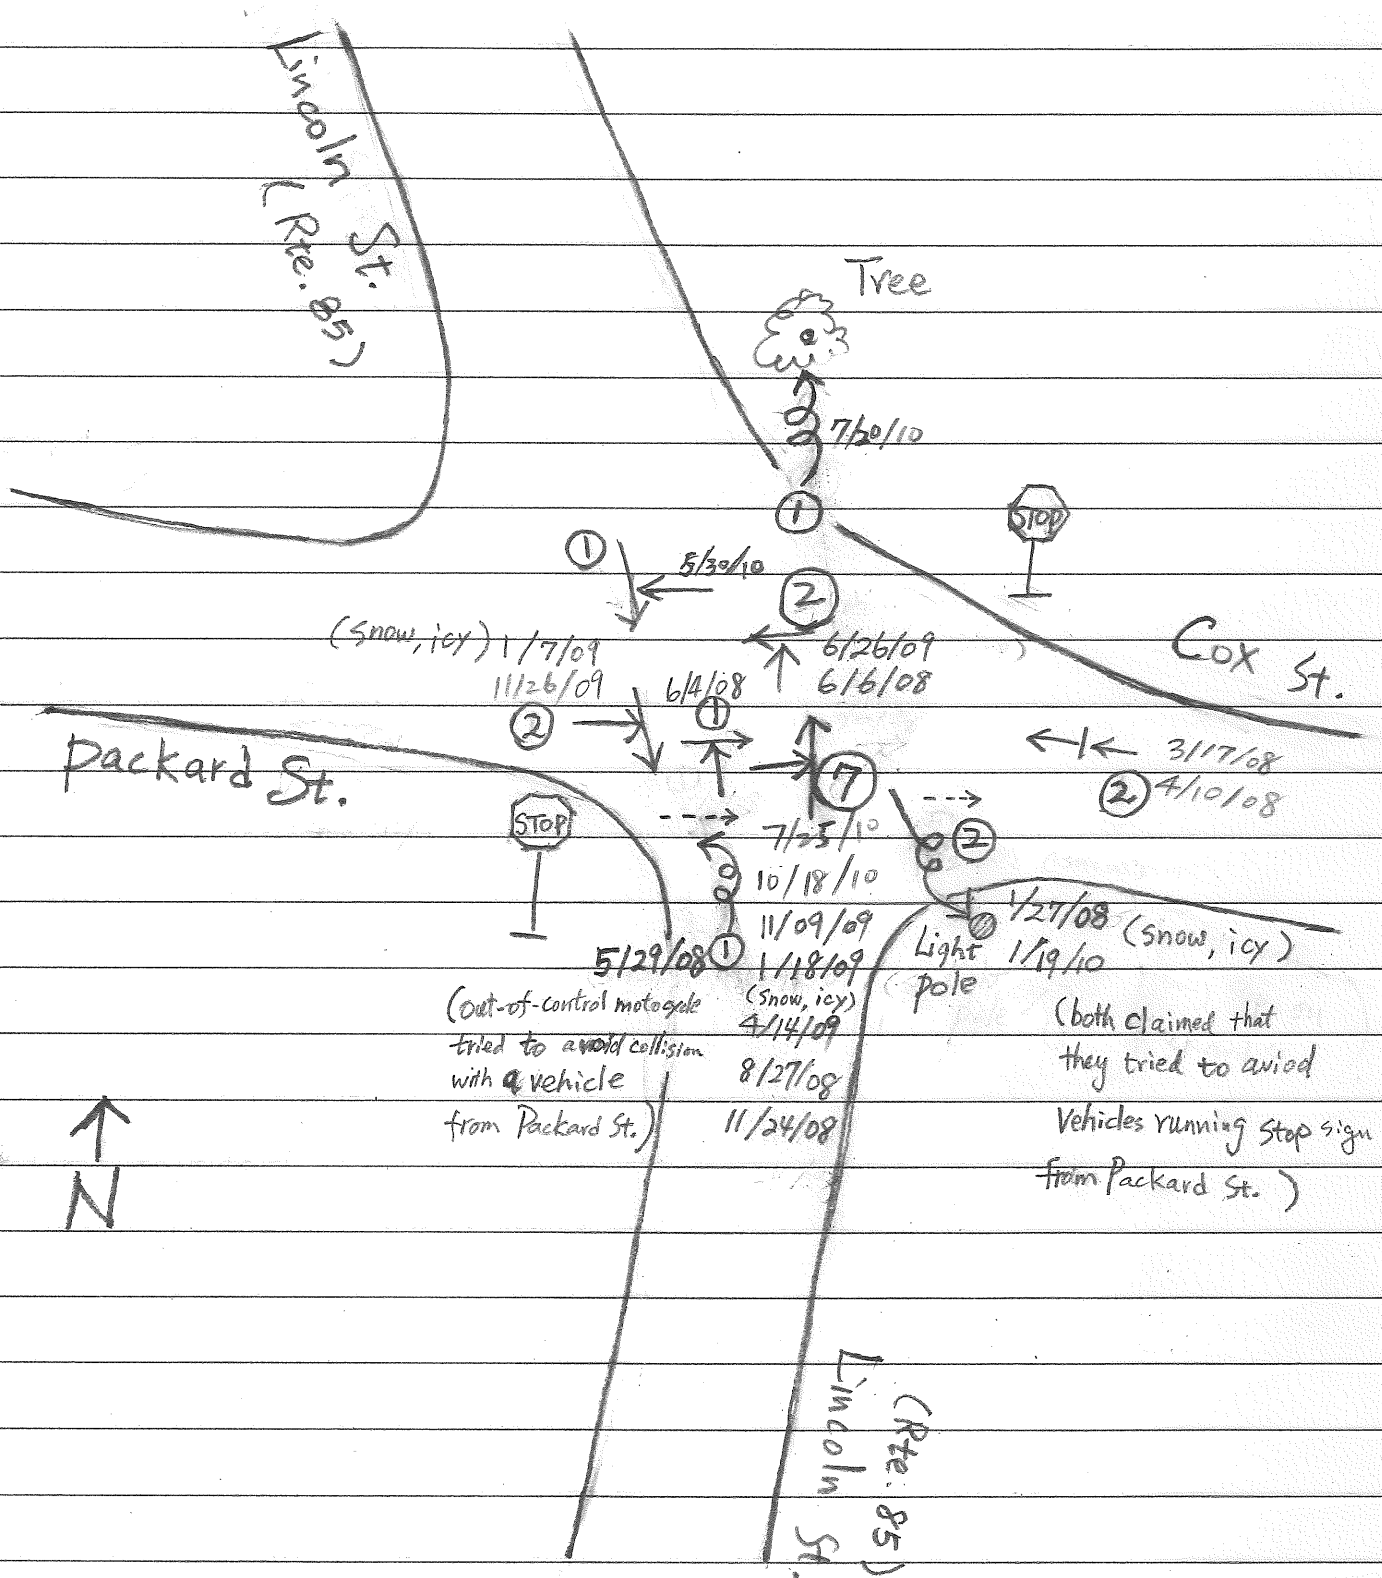 Lincoln St.
(Rte. 85)
Tree
7/20/10
1
STOP
1
5/30/10
2
Cox St.
(snow, icy) 1/7/09
11/26/09
2
6/26/09
6/6/08
6/4/08
1
3/17/08
2 4/10/08
Packard St.
STOP
7
7/25/10
10/18/10
11/09/09
1/18/09
(snow, icy)
4/14/09
8/27/08
11/24/08
2
1/27/08
1/19/10
(snow, icy)
Light
pole
5/29/08 1
(out-of-control motocycle
tried to avoid collision
with a vehicle
from Packard St.)
(both claimed that
they tried to aviod
vehicles running stop sign
from Packard St.)
N
(Rte. 85)
Lincoln St.